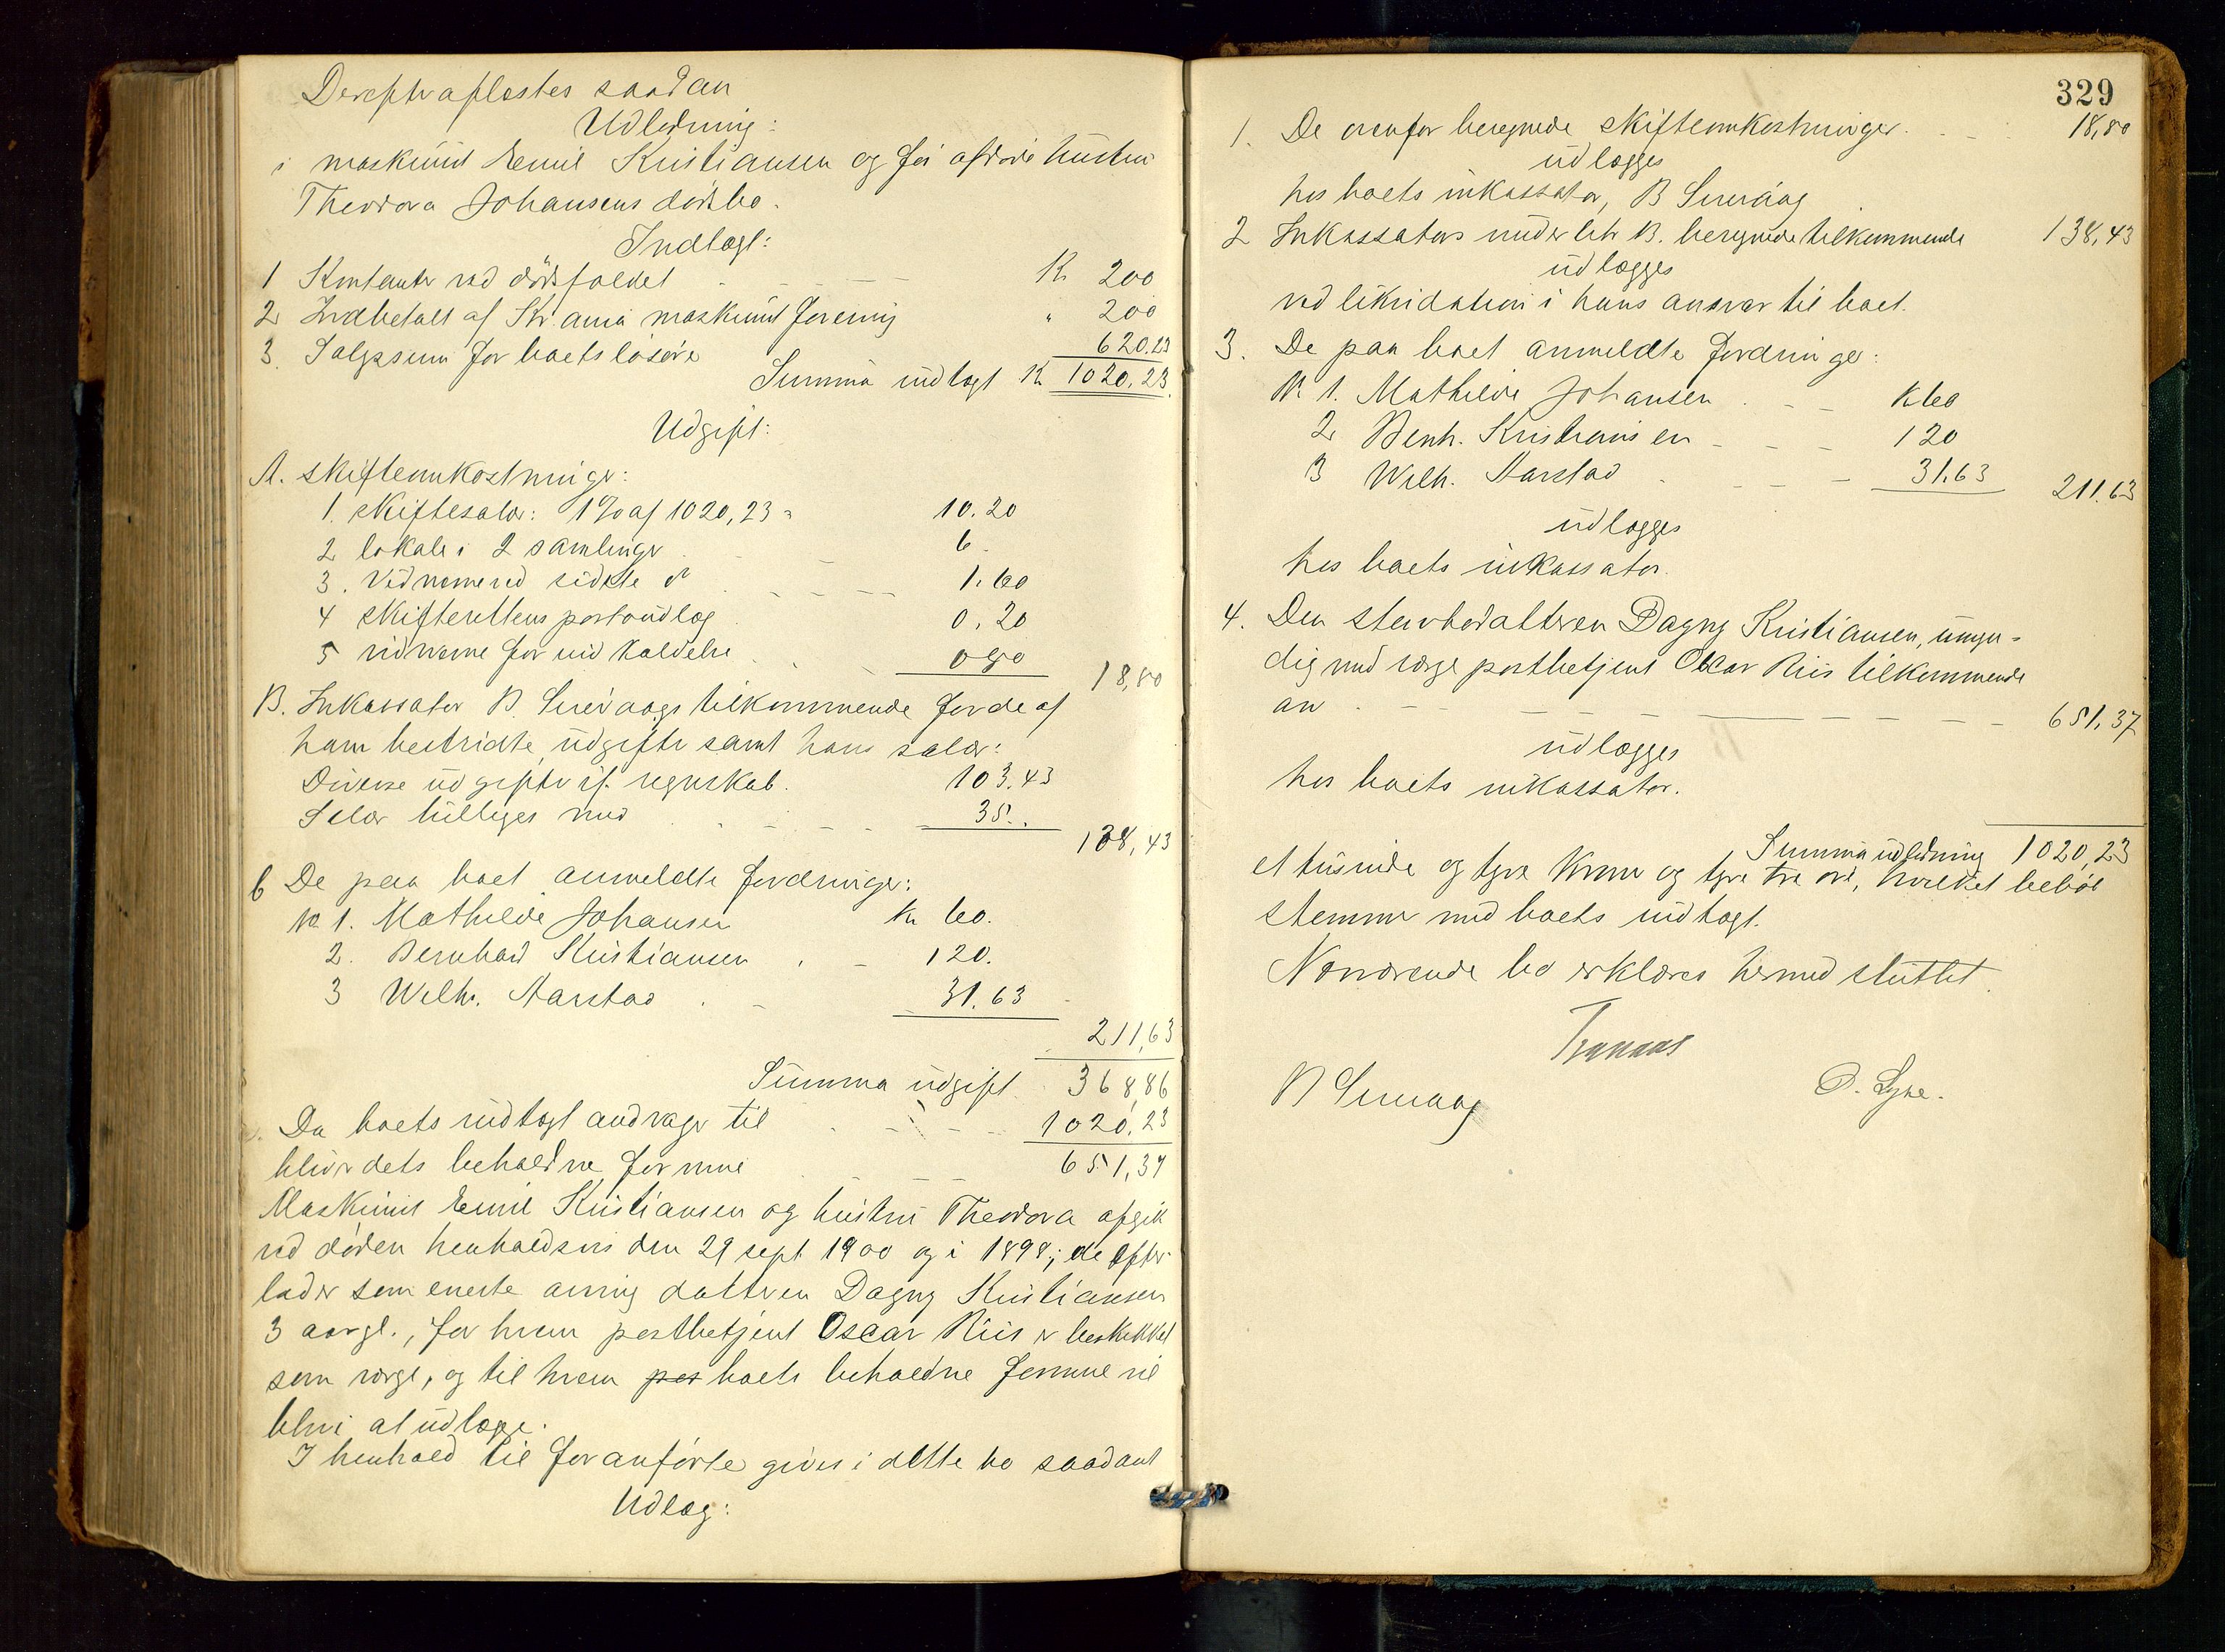 Derefter afsluttes saadan
Udlodning:
i maskinist Emil Kristiansen og før afdøde hustru
Theodora Johansens dødsbo.
Indtægt:
1 Kontanter ved dødsfaldet - - - Kr 200
2 Indbetalt af Kr.ania maskinist forening " 200
3. Salgssum for boets løsøre 620.23
Summa indtægt Kr 1020.23
Udgift:
A. Skifteomkostninger:
1. Skiftesalær: 1% af 1020,23 = 10.20
2 lokale i 2 samlinger - 6.
3. Vidnerne ved sidste do - - - - 1.60
4 Skifterettens portoudlæg 0.20
5 vidnerne for indkaldelse 0.80 18,80
B. Inkassator B. Sunvaags tilkommende for de af
ham bestridte udgifter samt hans salær:
Diverse udgifter if. regnskab. 103.43
Salær tillægges med - - - - 35.
138,43
C De paa boet anmeldte fordringer:
No. 1. Mathilde Johansen Kr 60.
2. Bernhard Kristiansen - 120.
3 Wilh. Aarstad - 31.63
211,63
Summa udgift 368,86
Da boets indtægt andrager til - - - 1020,23
bliver dets beholdne formue - - - 651,37
Maskinist Emil Kristiansen og hustru Theodora afgik
ved døden henholdsvis den 29 sept 1900 og i 1898; de efter-
lader som eneste arving datteren Dagny Kristiansen
3 aar gl., for hvem postbetjent Oscar Riis er beskikket
som værge, og til hvem pos boets beholdne formue vil
blive at udlægge.
I henhold til foranførte gives i dette bo saadant
Udlæg:
329
1. De ovenfor beregnede skifteomkostninger. - - 18,80
udlægges
hos boets inkassator, B Sunvaag
2 Inkassators under litr B. beregnede tilkommende 138,43
udlægges
ved likvidation i hans ansvar til boet.
3. De paa boet anmeldte fordringer:
No 1. Mathilde Johansen - - Kr 60
2 Bernh. Kristiansen - - - 120
3 Wilh. Aarstad - - - 31.63 211.63
udlægges
hos boets inkassator.
4. Den stervbodatteren Dagny Kristiansen, umyn-
dig med værge postbetjent Oscar Riis tilkommende
arv - - - - - - - - 651,37
udlægges
hos boets inkassator.
Summa udlodning 1020,23
et tusinde og tyve Kroner og tyve tre øre, hvilket beløb
stemmer med boets indtægt.
Nærværende bo erklæres hermed sluttet.
B Sunvaag
O. Lyne.